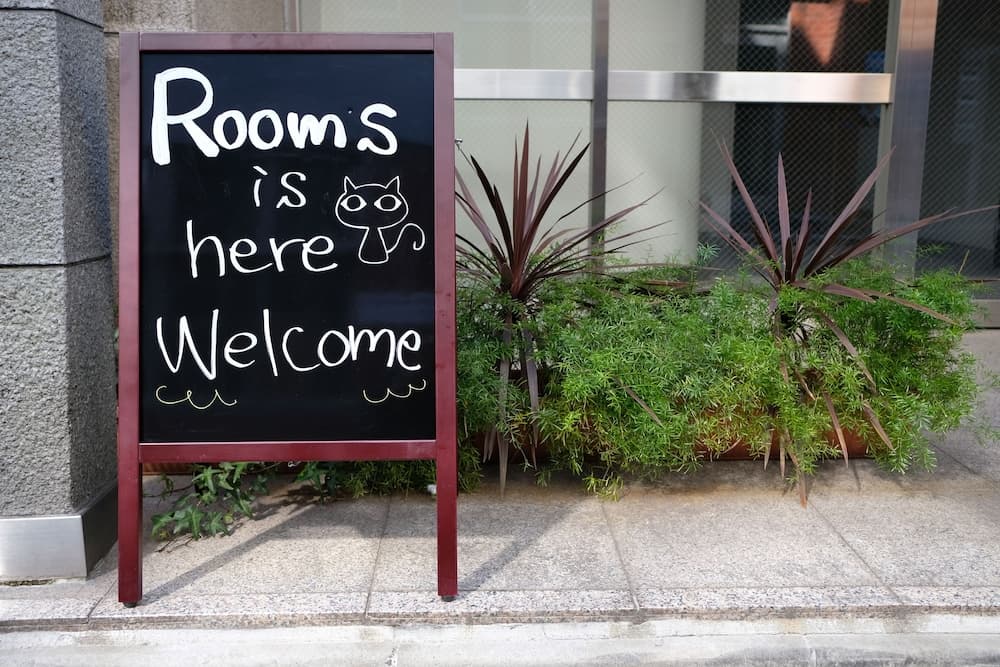 Rooms
is
here
Welcome